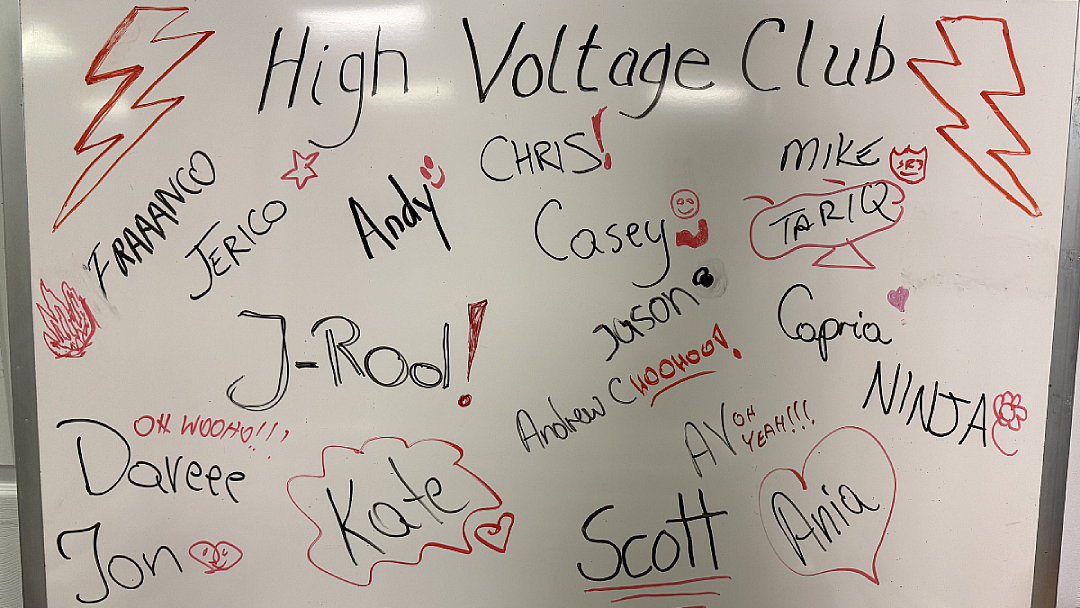 High Voltage Club
CHRIS!
MIKE
FRAAANCO
JERICO
Andy
Casey
TARIQ
Jason
Capria
J-Rod!
Andrew C WOOHOOO!
NINJA
OH WOOHO!!!
Daveee
AV OH YEAH!!!
Kate
Ania
Jon
Scott